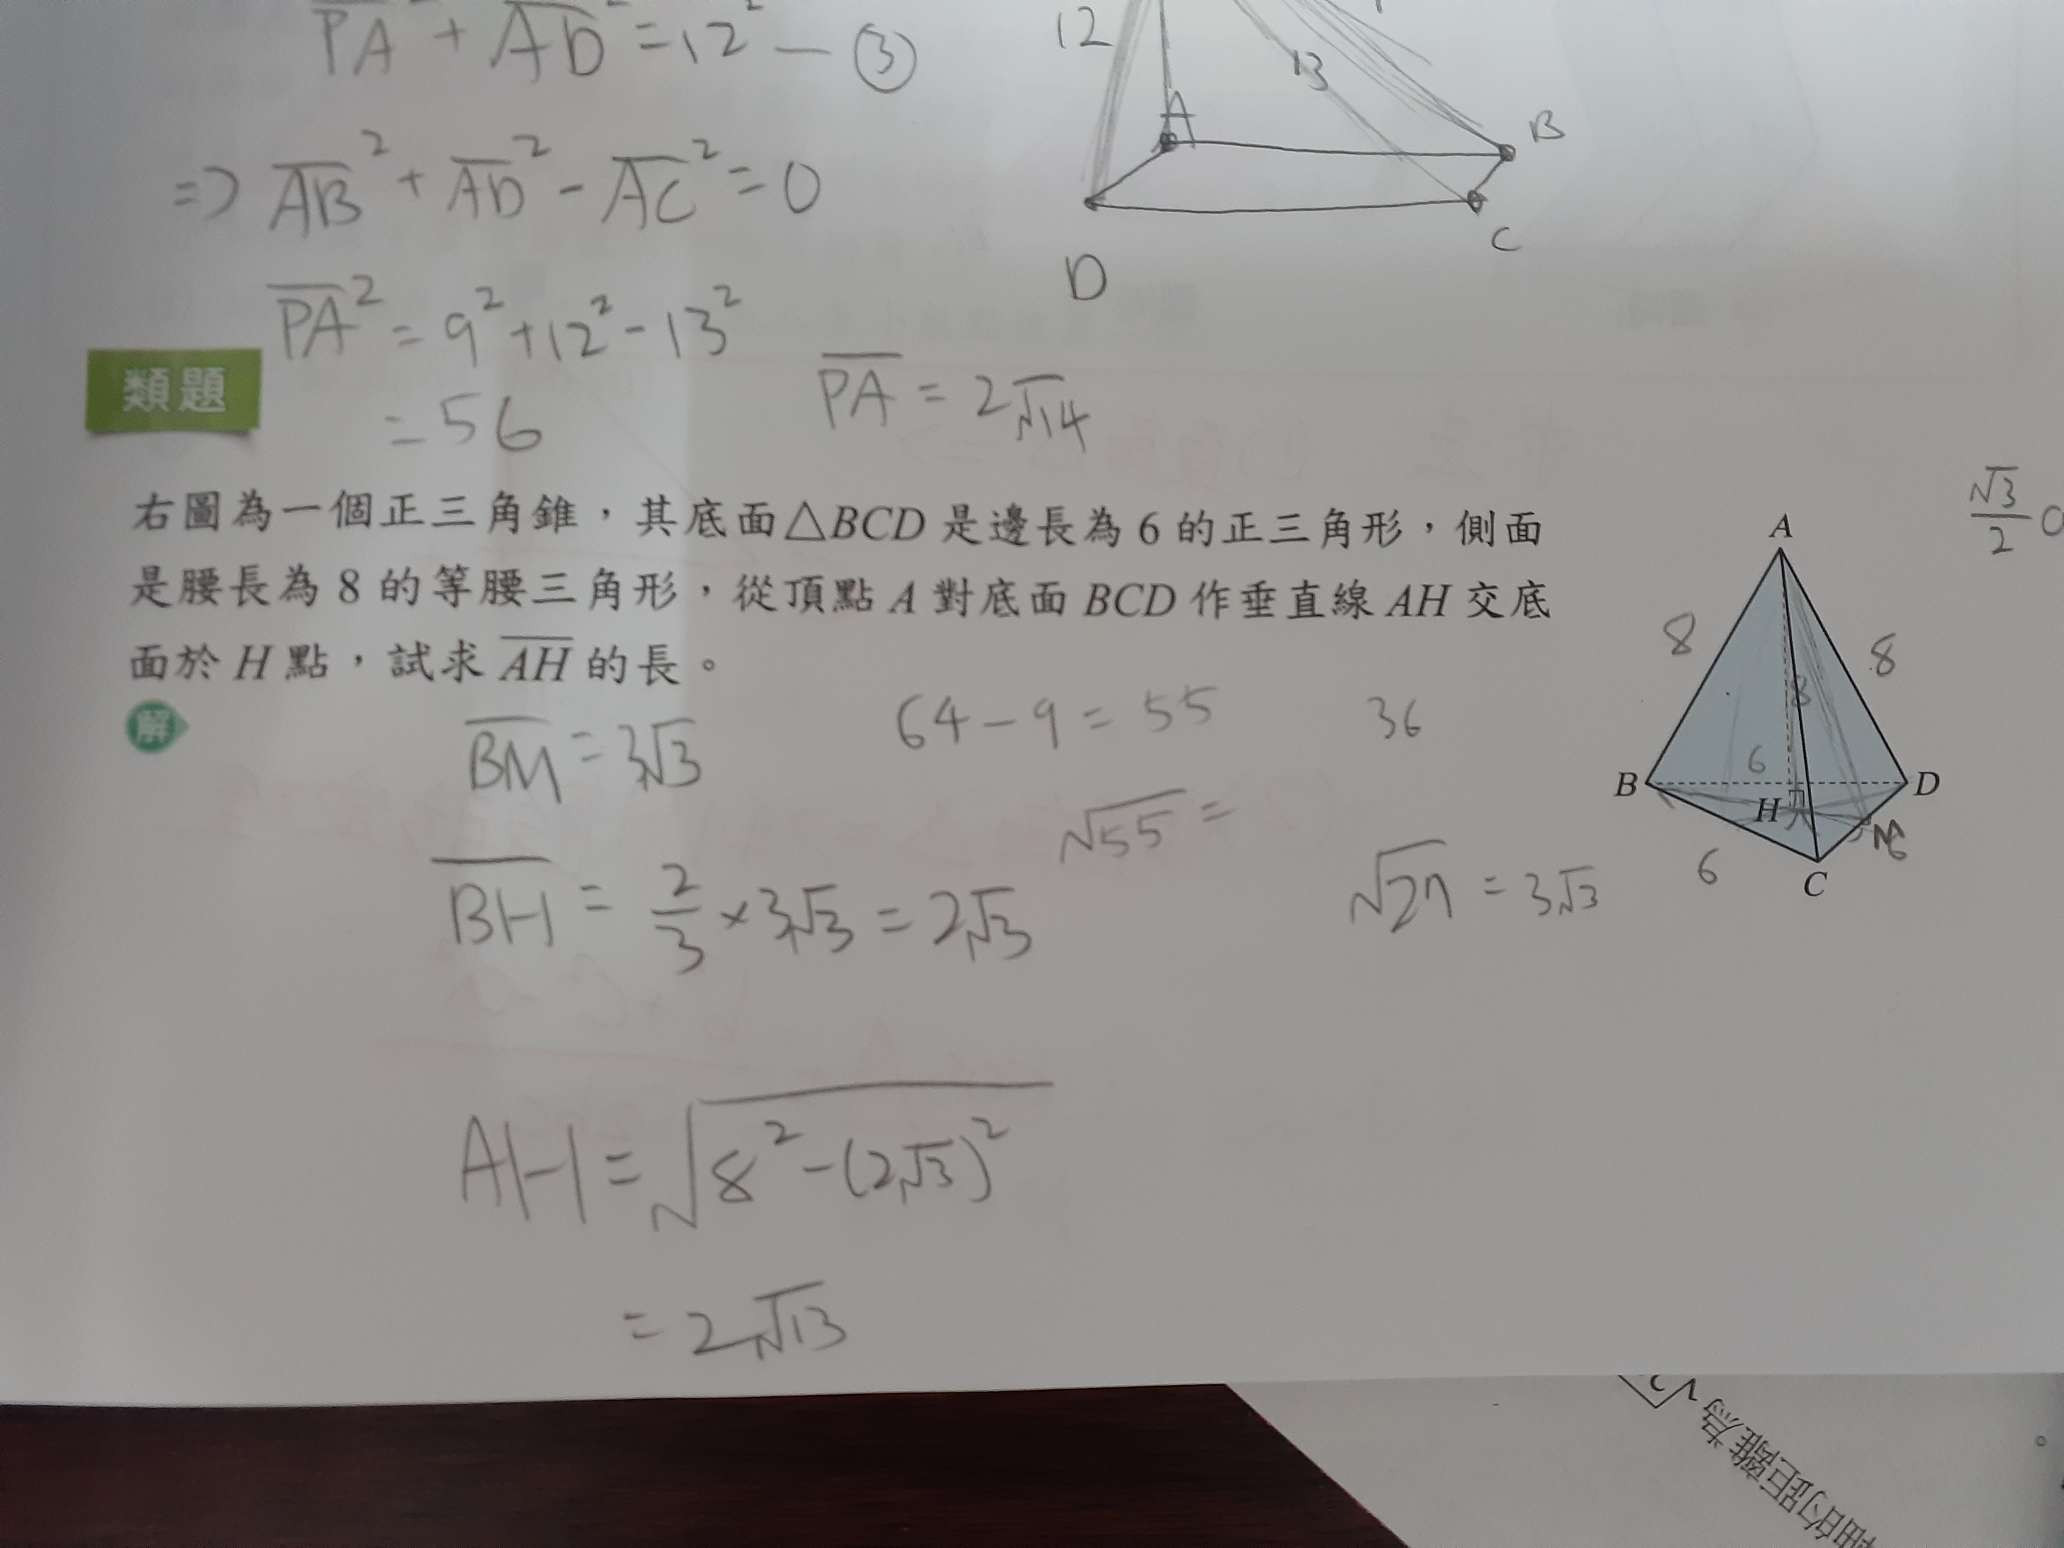 PA² + AD² = 12² — ③
12
13
A
B
C
D
⇒ AB² + AD² - AC² = 0
PA² = 9² + 12² - 13²
= 56
PA = 2√14
類題
右圖為一個正三角錐，其底面△BCD 是邊長為 6 的正三角形，側面
是腰長為 8 的等腰三角形，從頂點 A 對底面 BCD 作垂直線 AH 交底
面於 H 點，試求 AH 的長。
√3/2
A
8
8
8
6
B
H
D
M
6
6
C
解
BM = 3√3
64 - 9 = 55
36
√55 =
BH = 2/3 × 3√3 = 2√3
√27 = 3√3
AH = √8² - (2√3)²
= 2√13
的距離為√